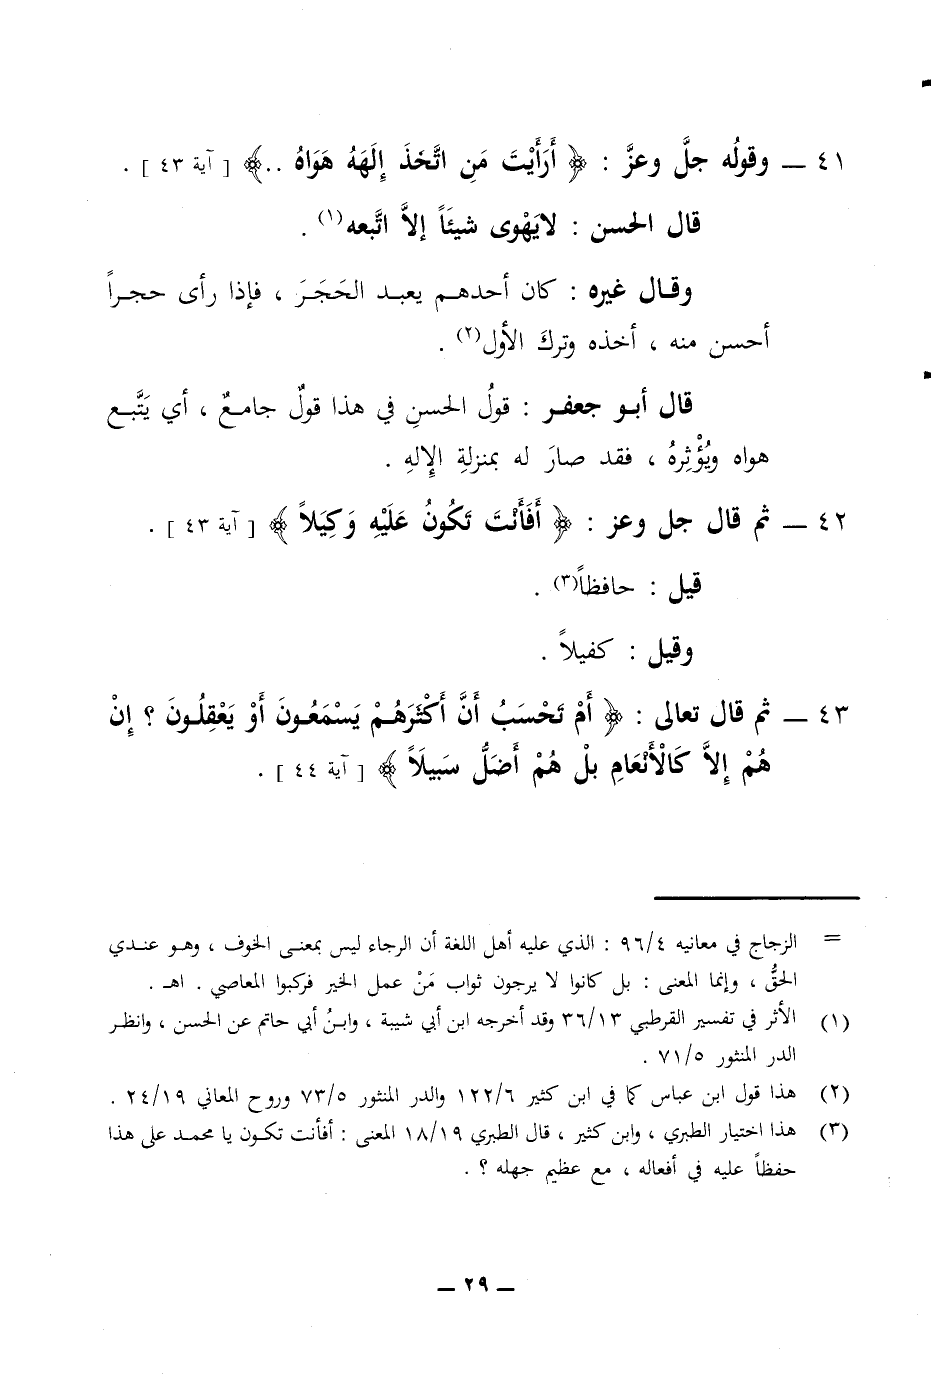 ٤١ ــ وقولُه جلَّ وعزَّ : ﴿ أَرَأَيْتَ مَنِ اتَّخَذَ إِلَهَهُ هَوَاهُ ..﴾ [ آية ٤٣ ] .
قال الحسن : لايَهْوى شيئَاً إلاَّ اتَّبعه(١) .
وقـال غيره : كان أحدهـم يعبـد الحَجَـرَ ، فـإذا رأى حجـراً
أحسن منه ، أخذه وتركَ الأول(٢) .
قال أبـو جعفـر : قولُ الحسنِ في هذا قولٌ جامـعٌ ، أي يَتَّبـع
هواه ويُؤْثِرهُ ، فقد صارَ له بمنزلةِ الإِلهِ .
٤٢ ــ ثم قال جل وعز : ﴿ أَفَأَنْتَ تَكُونُ عَلَيْهِ وَكِيَلاً ﴾ [ آية ٤٣ ] .
قيل : حافظاً(٣) .
وقيل : كفيلاً .
٤٣ ــ ثم قال تعالى : ﴿ أَمْ تَحْسَبُ أَنَّ أَكْثَرَهُـمْ يَسْمَعُـونَ أَوْ يَعْقِلُـونَ ؟ إِنْ
هُمْ إِلاَّ كَالْأَنْعَامِ بلْ هُمْ أَضَلُّ سَبِيلَاً ﴾ [ آية ٤٤ ] .
= الزجاج في معانيه ٩٦/٤ : الذي عليه أهل اللغة أن الرجاء ليس بمعنـى الخوف ، وهـو عنـدي
الحقُّ ، وإنما المعنى : بل كانوا لا يرجون ثواب مَنْ عمل الخير فركبوا المعاصي . اهـ .
(١) الأثر في تفسير القرطبي ٣٦/١٣ وقد أخرجه ابن أبي شيبة ، وابـنُ أبي حاتم عن الحسن ، وانظـر
الدر المنثور ٧١/٥ .
(٢) هذا قول ابن عباس كما في ابن كثير ١٢٢/٦ والدر المنثور ٧٣/٥ وروح المعاني ٢٤/١٩ .
(٣) هذا اختيار الطبري ، وابن كثير ، قال الطبري ١٨/١٩ المعنى : أفأنت تكـون يا محمـد على هذا
حفظاً عليه في أفعاله ، مع عظيم جهله ؟ .
ــ ٢٩ ــ